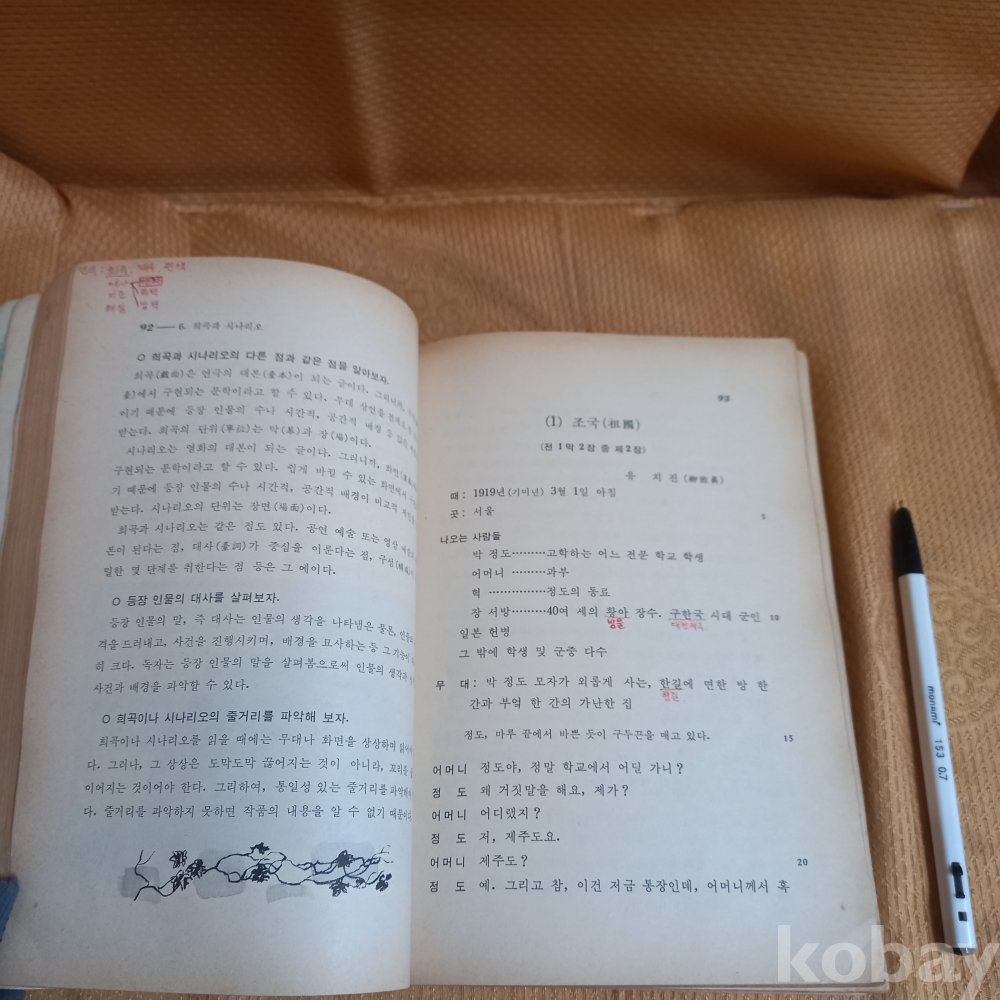 92 — 6. 희곡과 시나리오
○ 희곡과 시나리오의 다른 점과 같은 점을 알아보자.
희곡(戲曲)은 연극의 대본(臺本)이 되는 글이다. 그러니까,
臺)에서 구현되는 문학이라고 할 수 있다. 무대 상연을
이기 때문에 등장 인물의 수나 시간적, 공간적 배경 등
받는다. 희곡의 단위(單位)는 막(幕)과 장(場)이다.
시나리오는 영화의 대본이 되는 글이다. 그러니까, 화면
구현되는 문학이라고 할 수 있다. 쉽게 바뀔 수 있는 화면에서
기 때문에 등장 인물의 수나 시간적, 공간적 배경이 비교적
받는다. 시나리오의 단위는 장면(場面)이다.
희곡과 시나리오는 같은 점도 있다. 공연 예술 또는 영상
본이 된다는 점, 대사(臺詞)가 중심을 이룬다는 점, 구성
밀한 몇 단계를 취한다는 점 등은 그 예이다.
○ 등장 인물의 대사를 살펴보자.
등장 인물의 말, 즉 대사는 인물의 생각을 나타냄은 물론, 인물의
격을 드러내고, 사건을 진행시키며, 배경을 묘사하는 등 그 기능이
히 크다. 독자는 등장 인물의 말을 살펴봄으로써 인물의 생각과
사건과 배경을 파악할 수 있다.
○ 희곡이나 시나리오의 줄거리를 파악해 보자.
희곡이나 시나리오를 읽을 때에는 무대나 화면을 상상하며
다. 그러나, 그 상상은 도막도막 끊어지는 것이 아니라, 꼬리를
이어지는 것이어야 한다. 그리하여, 통일성 있는 줄거리를
다. 줄거리를 파악하지 못하면 작품의 내용을 알 수 없기
93
(1) 조국(祖國)
(전 1막 2장 중 제2장)
유 치진(柳致眞)
때: 1919년(기미년) 3월 1일 아침
곳: 서울 5
나오는 사람들
박 정도………고학하는 어느 전문 학교 학생
어머니………과부
혁 ……………정도의 동료
장 서방………40여 세의 황아 장수. 구한국 시대 군인 10
방물
대한제국
일본 헌병
그 밖에 학생 및 군중 다수
무 대: 박 정도 모자가 외롭게 사는, 한길에 면한 방 한
간과 부엌 한 간의 가난한 집
정도, 마루 끝에서 바쁜 듯이 구두끈을 매고 있다. 15
어머니 정도야, 정말 학교에서 어딜 가니?
정 도 왜 거짓말을 해요, 제가?
어머니 어디랬지?
정 도 저, 제주도요.
어머니 제주도? 20
정 도 예. 그리고 참, 이건 저금 통장인데, 어머니께서 혹
monami 153 0.7
kobay